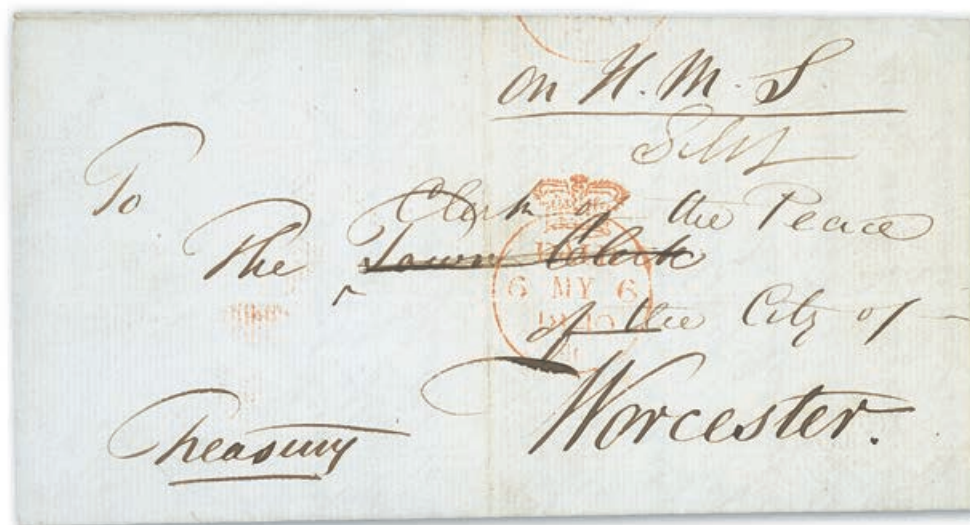 On H. M. S.
To
Clerk of the Peace
The Town Clerk
6 MY 6
1840
of the City of
Worcester.
Treasury